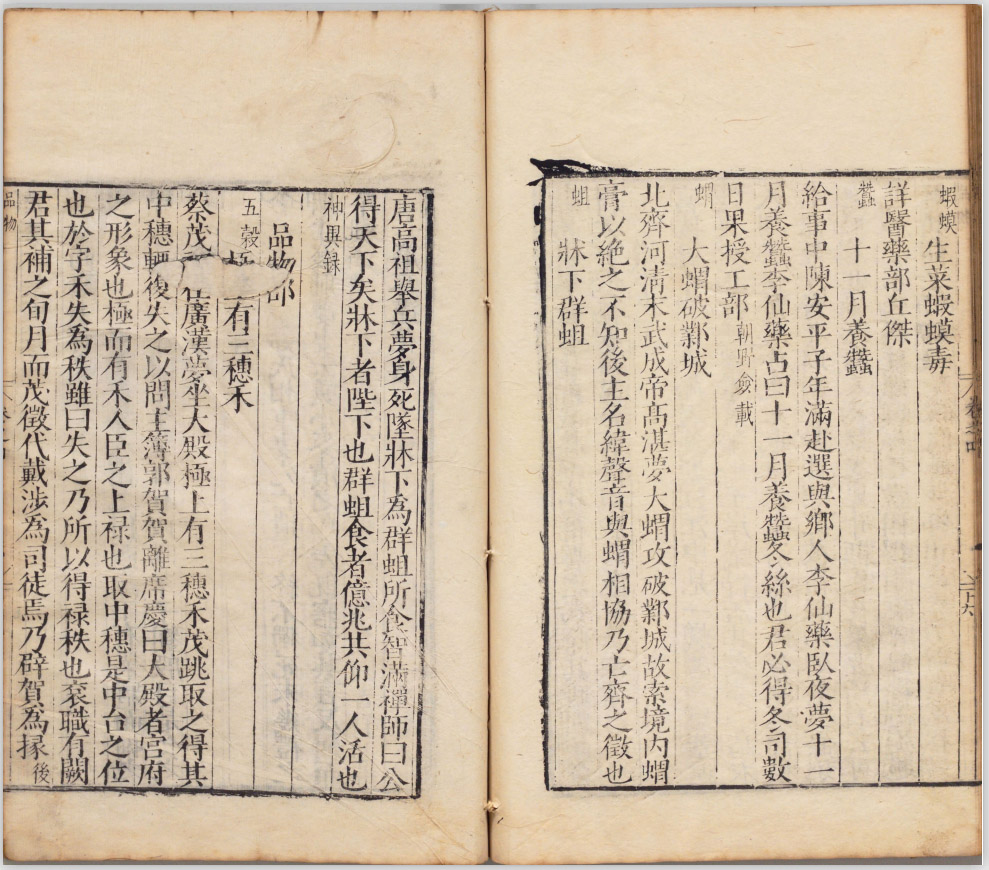 蝦蟆 生菜蝦蟆毒
詳醫藥部丘傑
蠶 十一月養蠶
給事中陳安平子年滿赴選與鄉人李仙藥臥夜夢十一
月養蠶李仙藥占曰十一月養蠶冬絲也君必得冬司數
日果授工部 朝野僉載
蝟 大蝟破鄴城
北齊河清末武成帝高湛夢大蝟攻破鄴城故索境內蝟
膏以絶之不知後主名緯聲音與蝟相協乃亡齊之徵也
蛆 牀下群蛆
唐高祖舉兵夢身死墜牀下為群蛆所食智滿禪師曰公
得天下矣牀下者陛下也群蛆食者億兆共仰一人活也
神異録
品物部
五穀 有三穗禾
蔡茂 在廣漢夢坐大殿極上有三穗禾茂跳取之得其
中穗輙復失之以問主簿郭賀賀離席慶曰大殿者宮府
之形象也極而有禾人臣之上禄也取中穗是中台之位
也於字禾失為秩雖曰失之乃所以得禄秩也袞職有闕
君其補之旬月而茂徵代戴涉為司徒焉乃辟賀為掾 後
品物